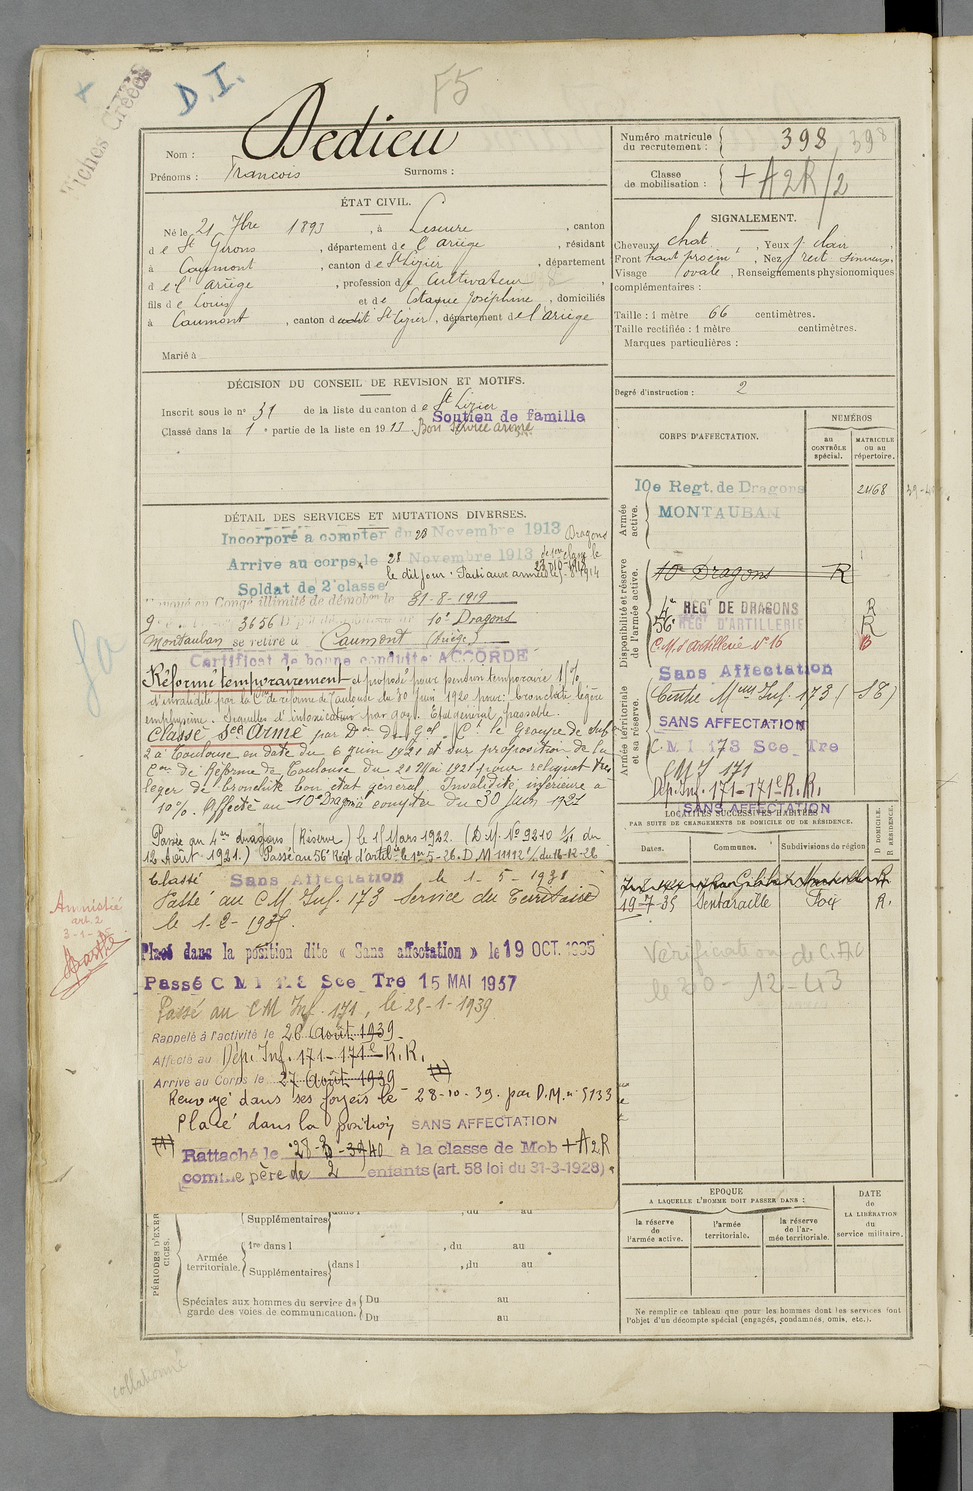 Fiches Créées
D. I.
F5
Nom : Dedieu
Prénoms : François Surnoms :
Numéro matricule du recrutement : 398 398
Classe de mobilisation : + A2R/2
ÉTAT CIVIL.
Né le 21 7bre 1893, à Lescure, canton
de St Girons, département de l'ariège, résidant
à Caumont, canton de St Lizier, département
de l'ariège, profession de Cultivateur
fils de Louis et de Joséphine, domiciliés
à Caumont, canton dudit St Lizier, département de l'ariège
Marié à
SIGNALEMENT.
Cheveux chat., Yeux j. clair,
Front haut proém, Nez rect. sinueux,
Visage ovale, Renseignements physionomiques
complémentaires :
Taille : 1 mètre 66 centimètres.
Taille rectifiée : 1 mètre centimètres.
Marques particulières :
Degré d'instruction : 2
DÉCISION DU CONSEIL DE REVISION ET MOTIFS.
Inscrit sous le n° 31 de la liste du canton de St Lizier
Soutien de famille
Classé dans la 1e partie de la liste en 1913. Bon service armé
DÉTAIL DES SERVICES ET MUTATIONS DIVERSES.
Incorporé à compter du 28 Novembre 1913 Dragons
Arrive au corps le 28 Novembre 1913
le dit jour.
Soldat de 2e classe
en Congé illimité de démobon le 31-8-1919
3656 10e Dragons
Montauban se retire à Caumont (Ariège)
Certificat de bonne conduite ACCORDÉ
Réformé temporairement et proposé pour pension temporaire
d'invalidité par la Con de réforme de Toulouse du 30 Juin 1920 pour: bronchite légère
emphysème. Sequelles d'intoxication par gaz. Etat général passable.
Classé Sce Armé par Don du Gal Ct le Groupe de Subd
à Toulouse en date du 6 juin 1921 et sur proposition de la
Con de Réforme de Toulouse du 20 Mai 1921 pour reliquat très
léger de bronchite bon état général. Invalidité inférieure à
10%. Affecté au 10e Dragons à compter du 30 Juin 1921
Passé au 4me dragons (Réserve) le 1er Mars 1922. (D.M. No 9210 1/4 du
12 Août 1921.) Passé au 56e Régt d'artie le 1er-5-26. D.M 11112 1/ du 16-12-26
Classé Sans Affectation le 1-5-1931
Passé au C.M. Inf. 173 Service du Territoire
le 1-2-193
Placé dans la position dite « Sans affectation » le 19 OCT. 1935
Passé C M I 173 Sce Tre 15 MAI 1937
Passé au CM Inf. 171, le 25-1-1939
Rappelé à l'activité le 26 Août 1939
Affecté au Dép. Inf. 171-171e R.R.
Arrive au Corps le 27 Août 1939 (1)
Renvoyé dans ses foyers le 28-10-39. par D.M. n° 5133
Placé dans la position SANS AFFECTATION
(1) Rattaché le 28-3-1940 à la classe de Mob + A2R
comme père de 2 enfants (art. 58 loi du 31-3-1928)
Amnistié
art. 2
CORPS D'AFFECTATION.
NUMÉROS
au CONTRÔLE spécial.
MATRICULE OU au répertoire.
Armée active.
10e Regt. de Dragons 2468
MONTAUBAN
Disponibilité et réserve de l'armée active.
10e Dragons R
4e REGt DE DRAGONS R
56e REGt D'ARTILLERIE R
C.M. d'artillerie N° 16
Sans Affectation
Armée territoriale et sa réserve.
Centre Mon Inf. 173 (
SANS AFFECTATION
C M I 173 Sce Tre
C M I 171
Dép. Inf. 171-171e R.R.
SANS AFFECTATION
LOCALITÉS SUCCESSIVES HABITÉES
PAR SUITE DE CHANGEMENTS DE DOMICILE OU DE RÉSIDENCE.
Dates. Communes. Subdivisions de région D DOMICILE. R RÉSIDENCE.
19-7-35 Sentaraille Foix R.
Vérification de C.
le 20-12-43
EPOQUE
A LAQUELLE L'HOMME DOIT PASSER DANS :
la réserve de l'armée active.
l'armée territoriale.
la réserve de l'armée territoriale.
DATE DE LA LIBÉRATION du service militaire.
PÉRIODES D'EXERCICES.
Supplémentaires dans l du au
Armée territoriale.
1re dans l , du au
Supplémentaires dans l , du au
Spéciales aux hommes du service de garde des voies de communication. Du au
Du au
Ne remplir ce tableau que pour les hommes dont les services font
l'objet d'un décompte spécial (engagés, condamnés, omis, etc.).
collationné